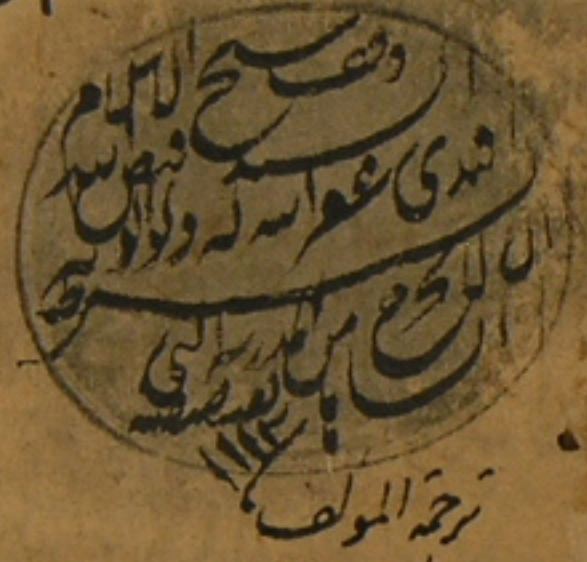 وقف شيخ الاسلام
السيد فيض الله
افندي غفر الله له ولوالديه
بشرط ان لا يخرج
من المدرسة التي
انشاها بقسطنطينية
١١١٣
ترجمة المؤلف